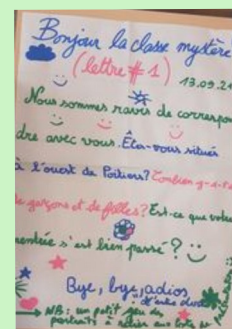 Bonjour la classe mystère
(lettre #1)
13.09.21
Nous sommes ravis de correspon
dre avec vous. Êtes-vous situés
à l'ouest de Poitiers? Combien y-a-t-
de garçons et de filles? Est-ce que votre
rentrée s'est bien passé?
Bye, bye, adios
NB: un petit peu de
portraits à relier aux